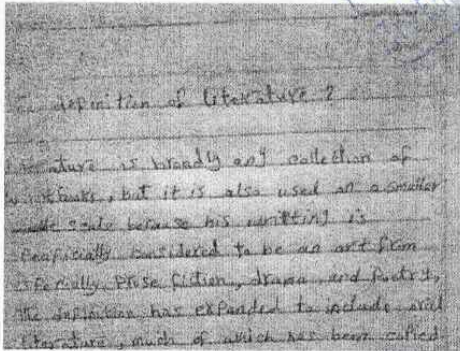 definition of literature ?
ature is broadly any collection of
but it is also used on a smaller
scale because his writting is
considered to be an art from
especially Prose fiction, drama, and Poetry,
the definition has expanded to include oral
literature, much of which has been